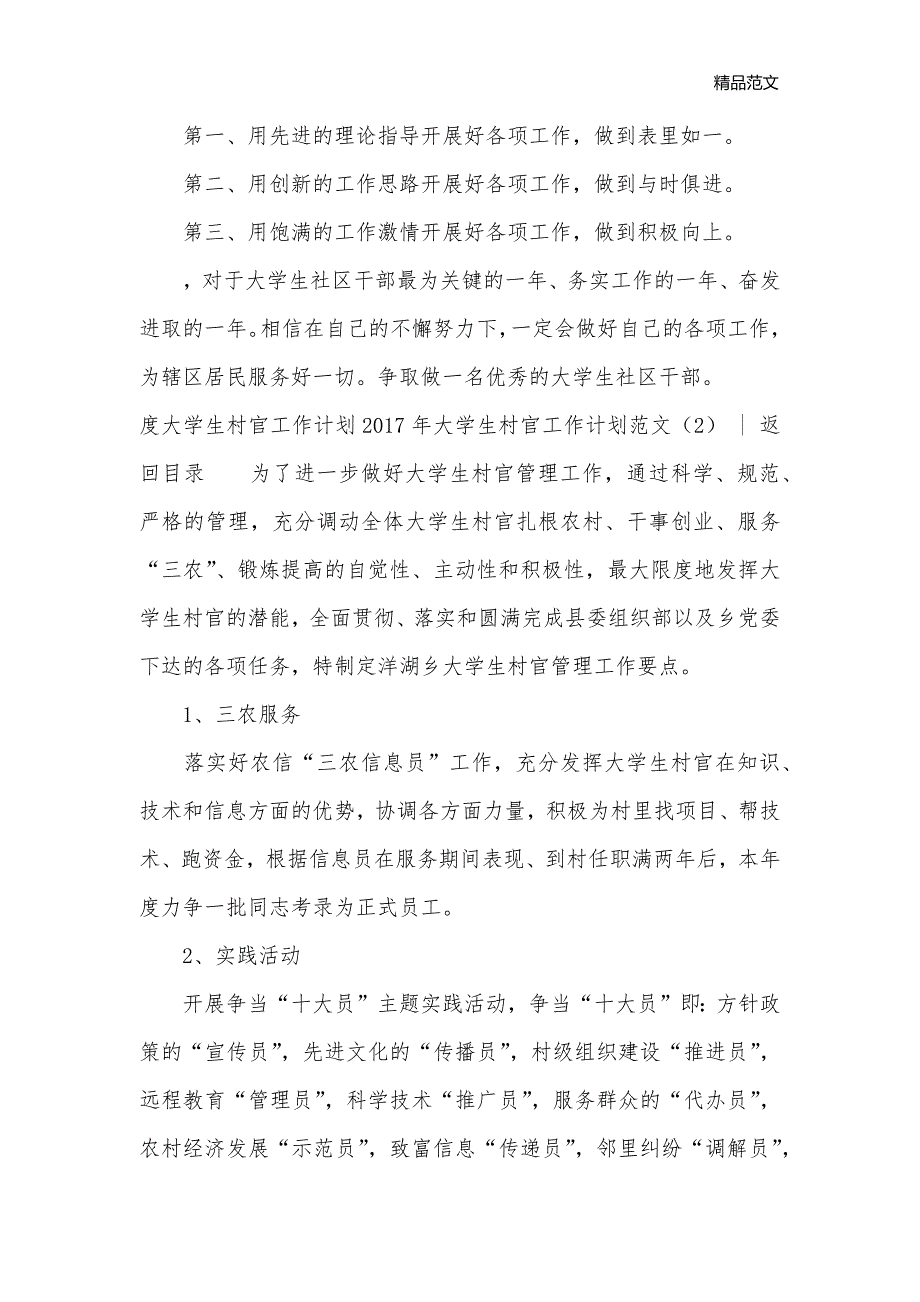 精品范文
第一、用先进的理论指导开展好各项工作，做到表里如一。
第二、用创新的工作思路开展好各项工作，做到与时俱进。
第三、用饱满的工作激情开展好各项工作，做到积极向上。
，对于大学生社区干部最为关键的一年、务实工作的一年、奋发
进取的一年。相信在自己的不懈努力下，一定会做好自己的各项工作，
为辖区居民服务好一切。争取做一名优秀的大学生社区干部。
度大学生村官工作计划 2017 年大学生村官工作计划范文（2） | 返
回目录 为了进一步做好大学生村官管理工作，通过科学、规范、
严格的管理，充分调动全体大学生村官扎根农村、干事创业、服务
“三农”、锻炼提高的自觉性、主动性和积极性，最大限度地发挥大
学生村官的潜能，全面贯彻、落实和圆满完成县委组织部以及乡党委
下达的各项任务，特制定洋湖乡大学生村官管理工作要点。
1、三农服务
落实好农信“三农信息员”工作，充分发挥大学生村官在知识、
技术和信息方面的优势，协调各方面力量，积极为村里找项目、帮技
术、跑资金，根据信息员在服务期间表现、到村任职满两年后，本年
度力争一批同志考录为正式员工。
2、实践活动
开展争当“十大员”主题实践活动，争当“十大员”即：方针政
策的“宣传员”，先进文化的“传播员”，村级组织建设“推进员”，
远程教育“管理员”，科学技术“推广员”，服务群众的“代办员”，
农村经济发展“示范员”，致富信息“传递员”，邻里纠纷“调解员”，